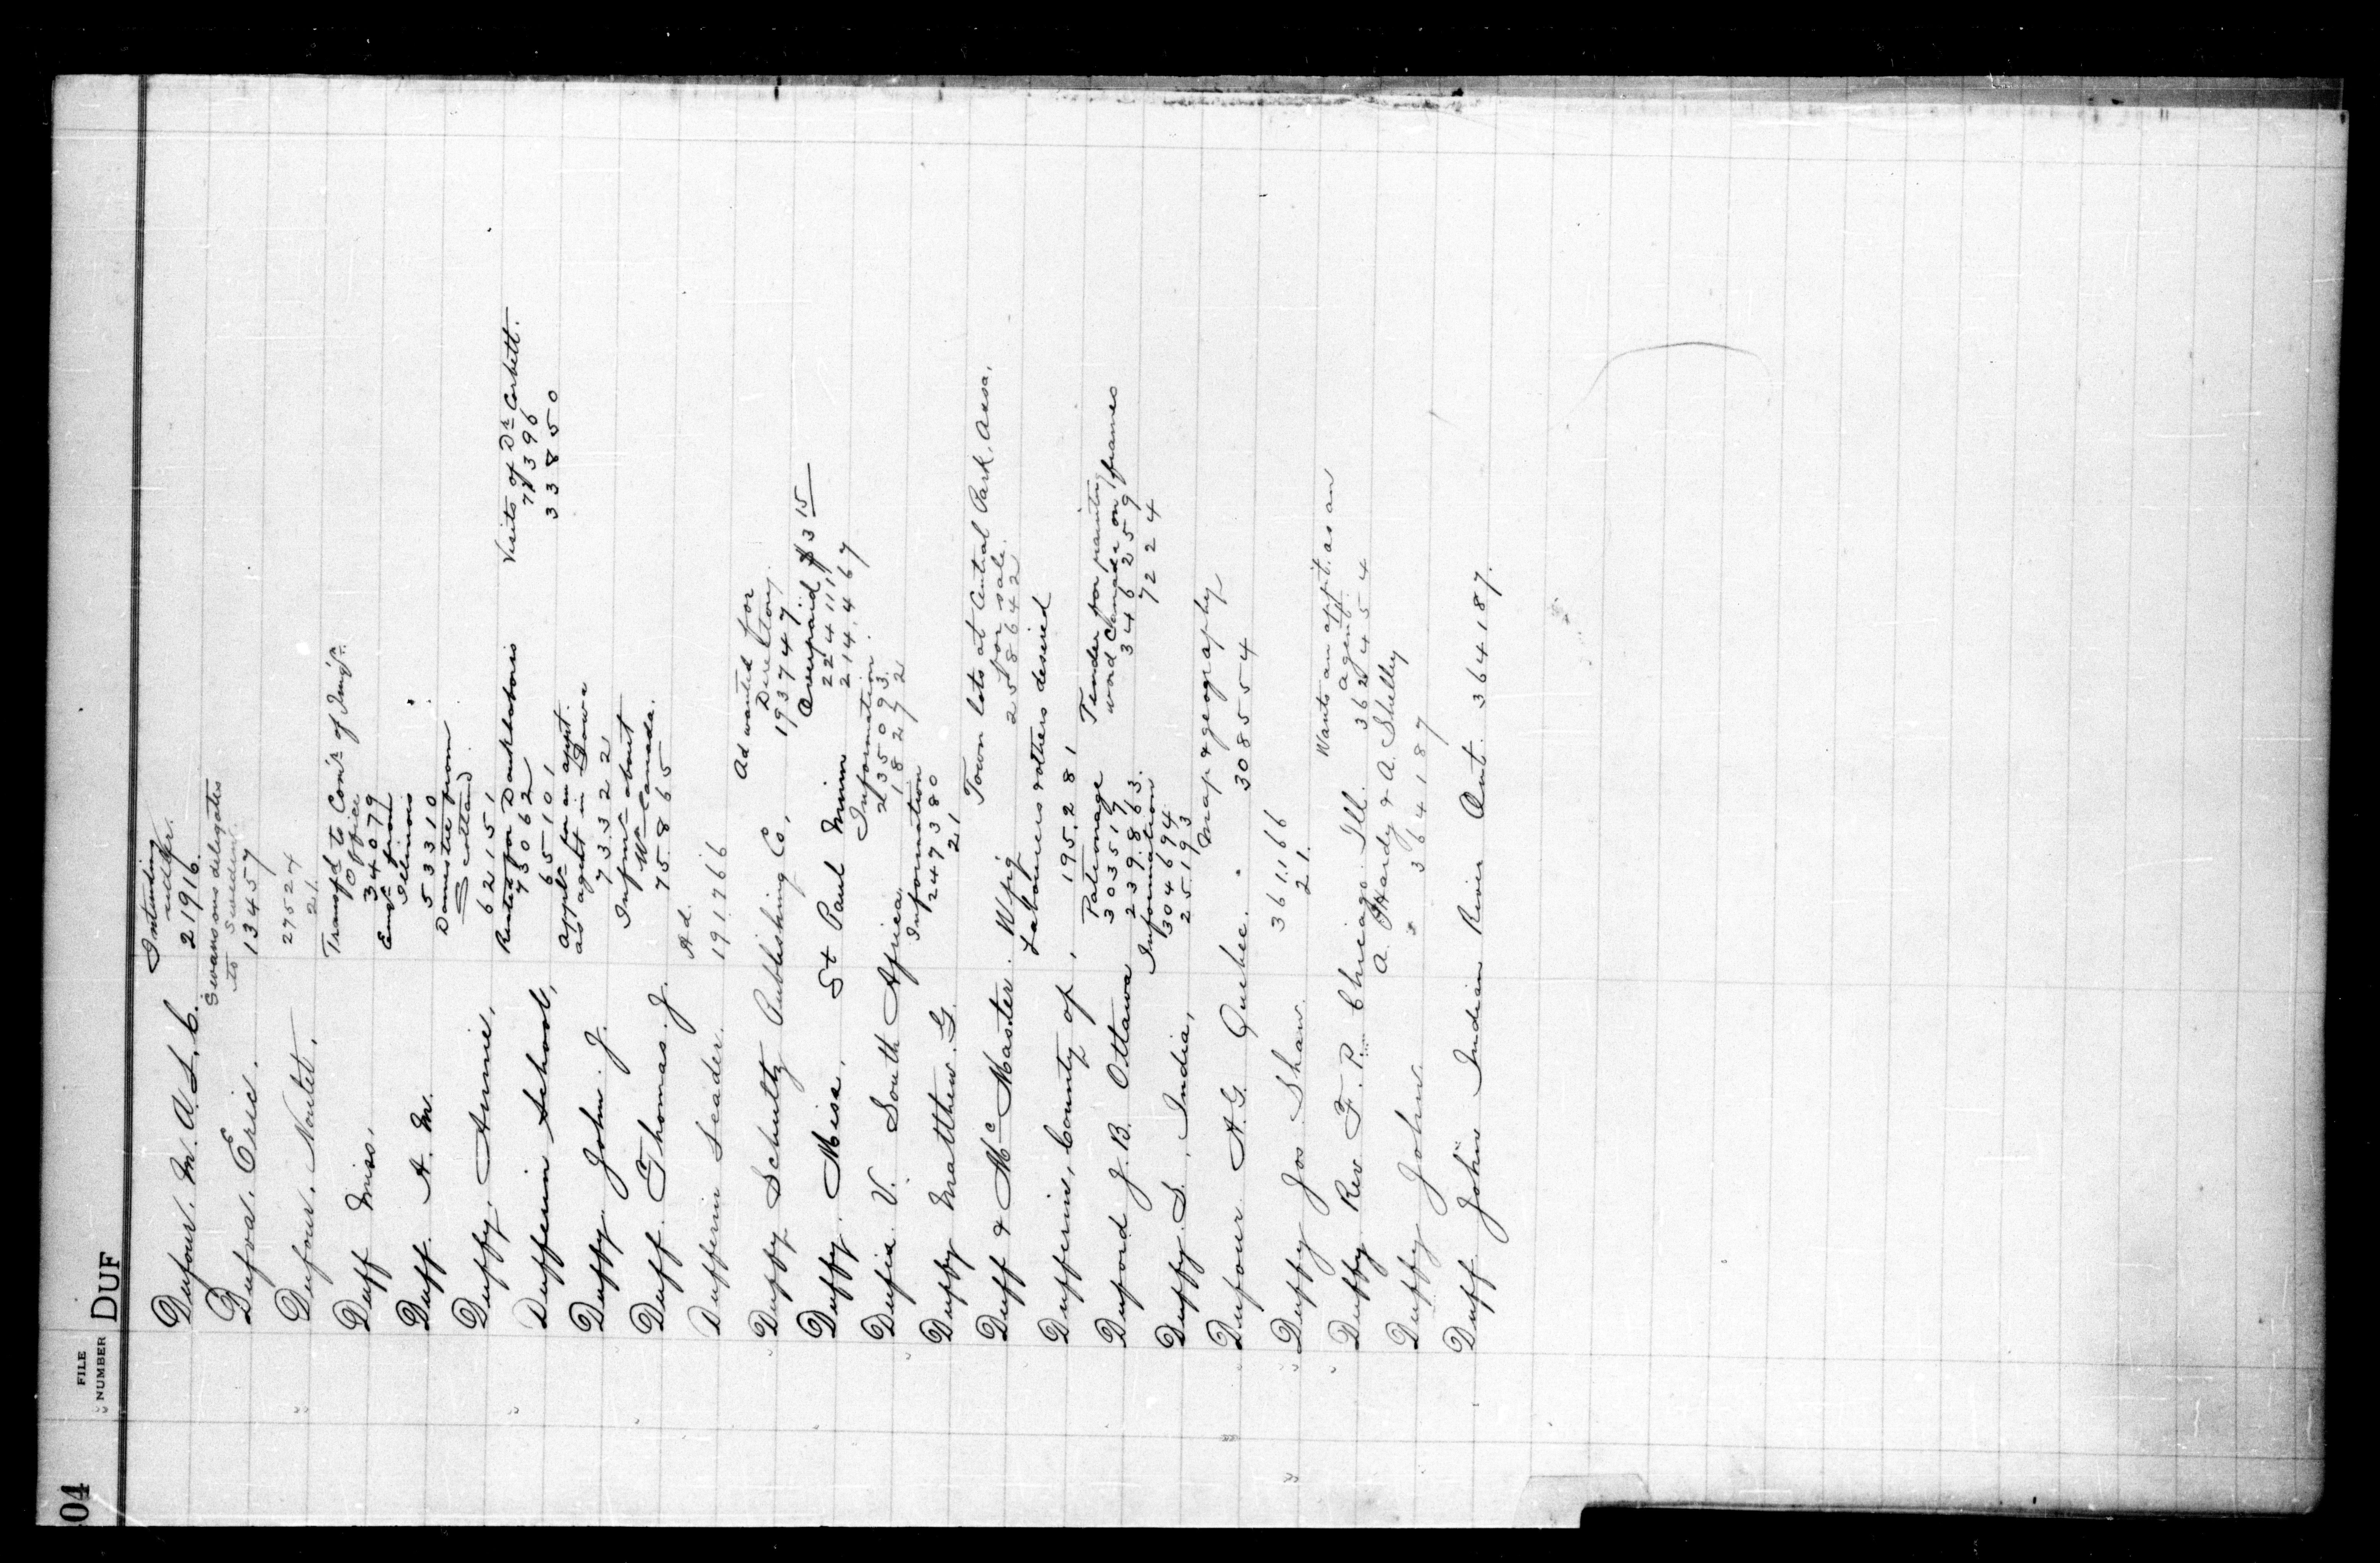 04
FILE
NUMBER DUF
Intending
settler.
Dufour. M. A. L. C. 21916.
Swansons delegates
to Sweden.
Dufva. Eric. 13457
Dufour. Noulet. 27524
21.
Transf'd to Com'r of Img'n.
Office
Duff Miss. 34079
Emgt. from
Illinois
Duff. A. M. 53310
Domestic from
Scotland.
Duffy, Annie, 62151
Rents for Doukhobors Visits of Dr Corbett.
Dufferin School, 73062 77396
65101 33850
Applt. for an appt.
as agent in Iowa
Duffy. John. J. 73322
Infmt about
Wn Canada.
Duff. Thomas. J. 75865
Ad.
Dufferin Leader. 191766
Ad wanted for
Directory.
Duffy Schultz Publishing Co, 193747.
Overpaid $3 15
224111
Duffy. Misa, St Paul Minn 214,467
Information.
235093
Dufia. V. South Africa. 18272
Information
247380
Duffy Matthew. G. 21
Town lots at Central Park, Assa.
for sale.
Duff & McMaster. Wpig 258642
Labourers & others desired
Dufferin, County of, 195,281
Patronage Tender for painting
303519 word Canada on frames
Duford J. B. Ottawa 239.863. 346259
Information 7224
304694
Duffy. S. India, 25193
Map & geography
Dufour A. G. Quebec. 308554
Duffy Jos. Shaw. 361,166
21.
Wants an appt. as an
agent.
Duffy Rev F. P. Chicago Ill. 362454
A. Hardy & A. Shelley
Duffy John. 364187
Duff John Indian River Ont. 364187.